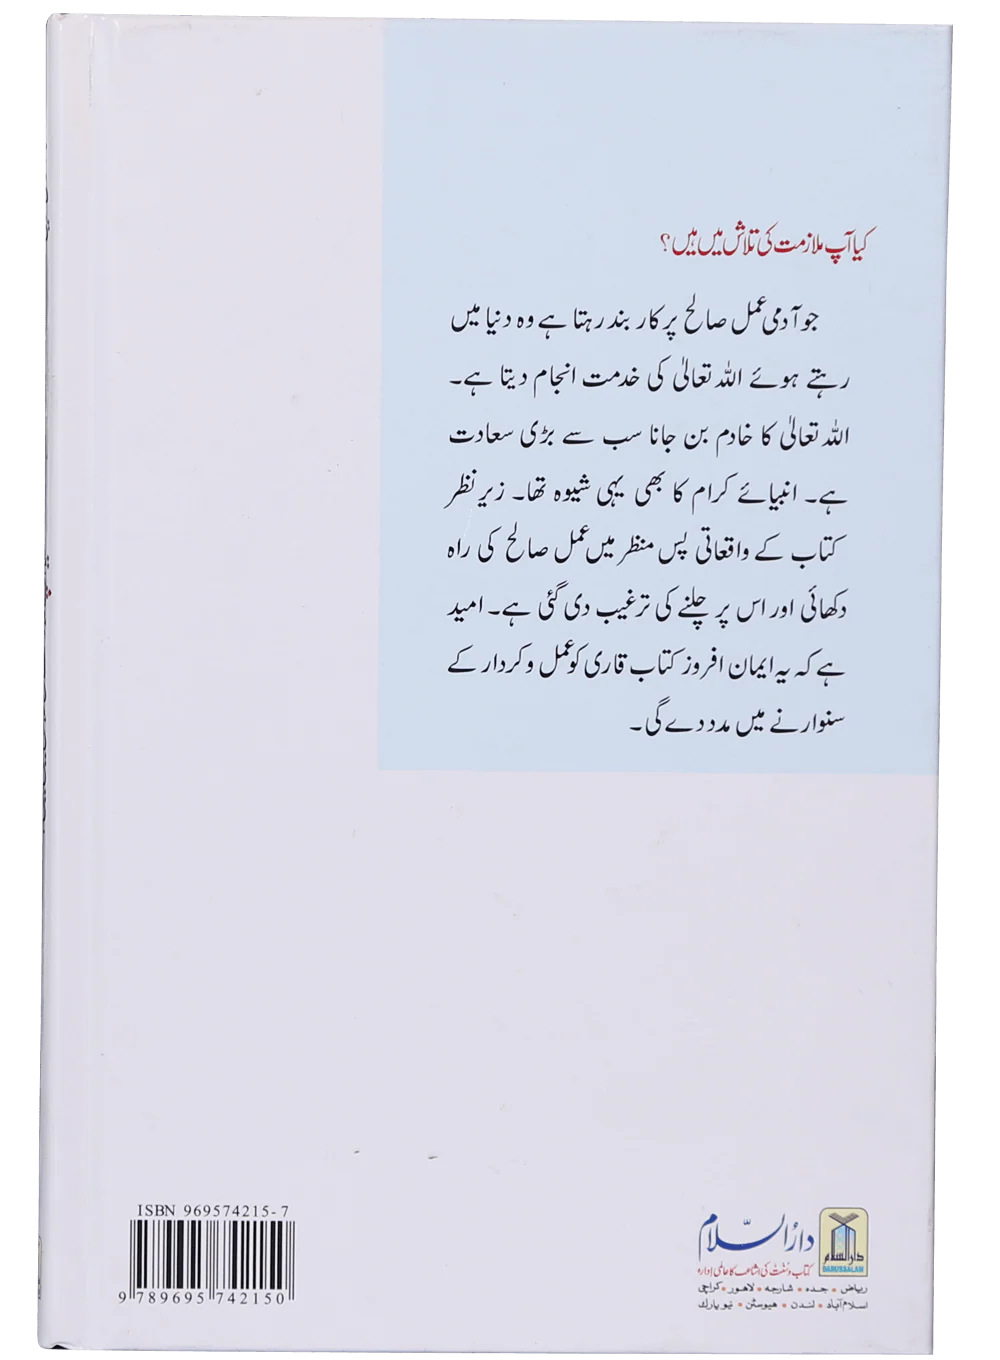 کیا آپ ملازمت کی تلاش میں ہیں؟
جو آدمی عمل صالح پر کار بند رہتا ہے وہ دنیا میں
رہتے ہوئے اللہ تعالیٰ کی خدمت انجام دیتا ہے۔
اللہ تعالیٰ کا خادم بن جانا سب سے بڑی سعادت
ہے۔ انبیائے کرام کا بھی یہی شیوہ تھا۔ زیر نظر
کتاب کے واقعاتی پس منظر میں عمل صالح کی راہ
دکھائی اور اس پر چلنے کی ترغیب دی گئی ہے۔ امید
ہے کہ یہ ایمان افروز کتاب قاری کو عمل و کردار کے
سنوارنے میں مدد دے گی۔
ISBN 969574215-7
9 789695 742150
دارالسلام
دارالسلام
DARUSSALAM
کتاب و سنت کی اشاعت کا عالمی ادارہ
ریاض • جدہ • شارجہ • لاہور • کراچی
اسلام آباد • لندن • ہیوسٹن • نیو یارک